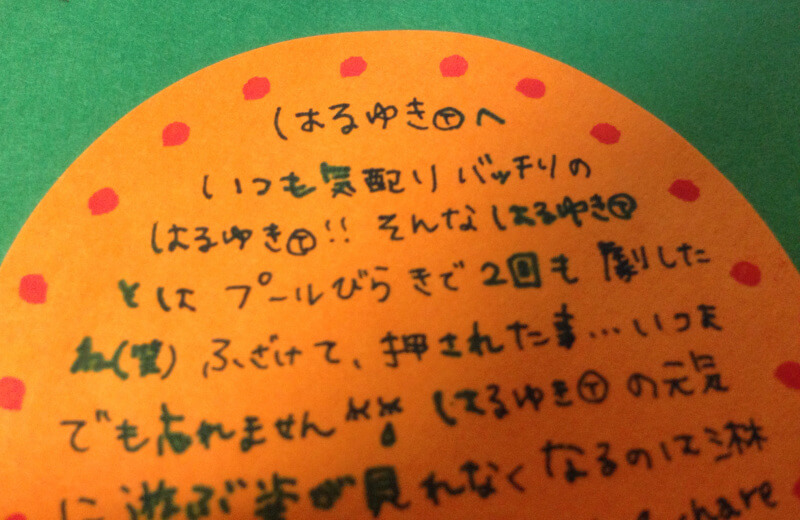 はるゆきⓉへ
いつも気配りバッチリの
はるゆきⓉ!! そんなはるゆきⓉ
とは プールびらきで2回も 劇した
ね(笑) ふざけて、押された事…いつま
でも忘れません はるゆきⓉの元気
に遊ぶ姿が見れなくなるのは淋
share